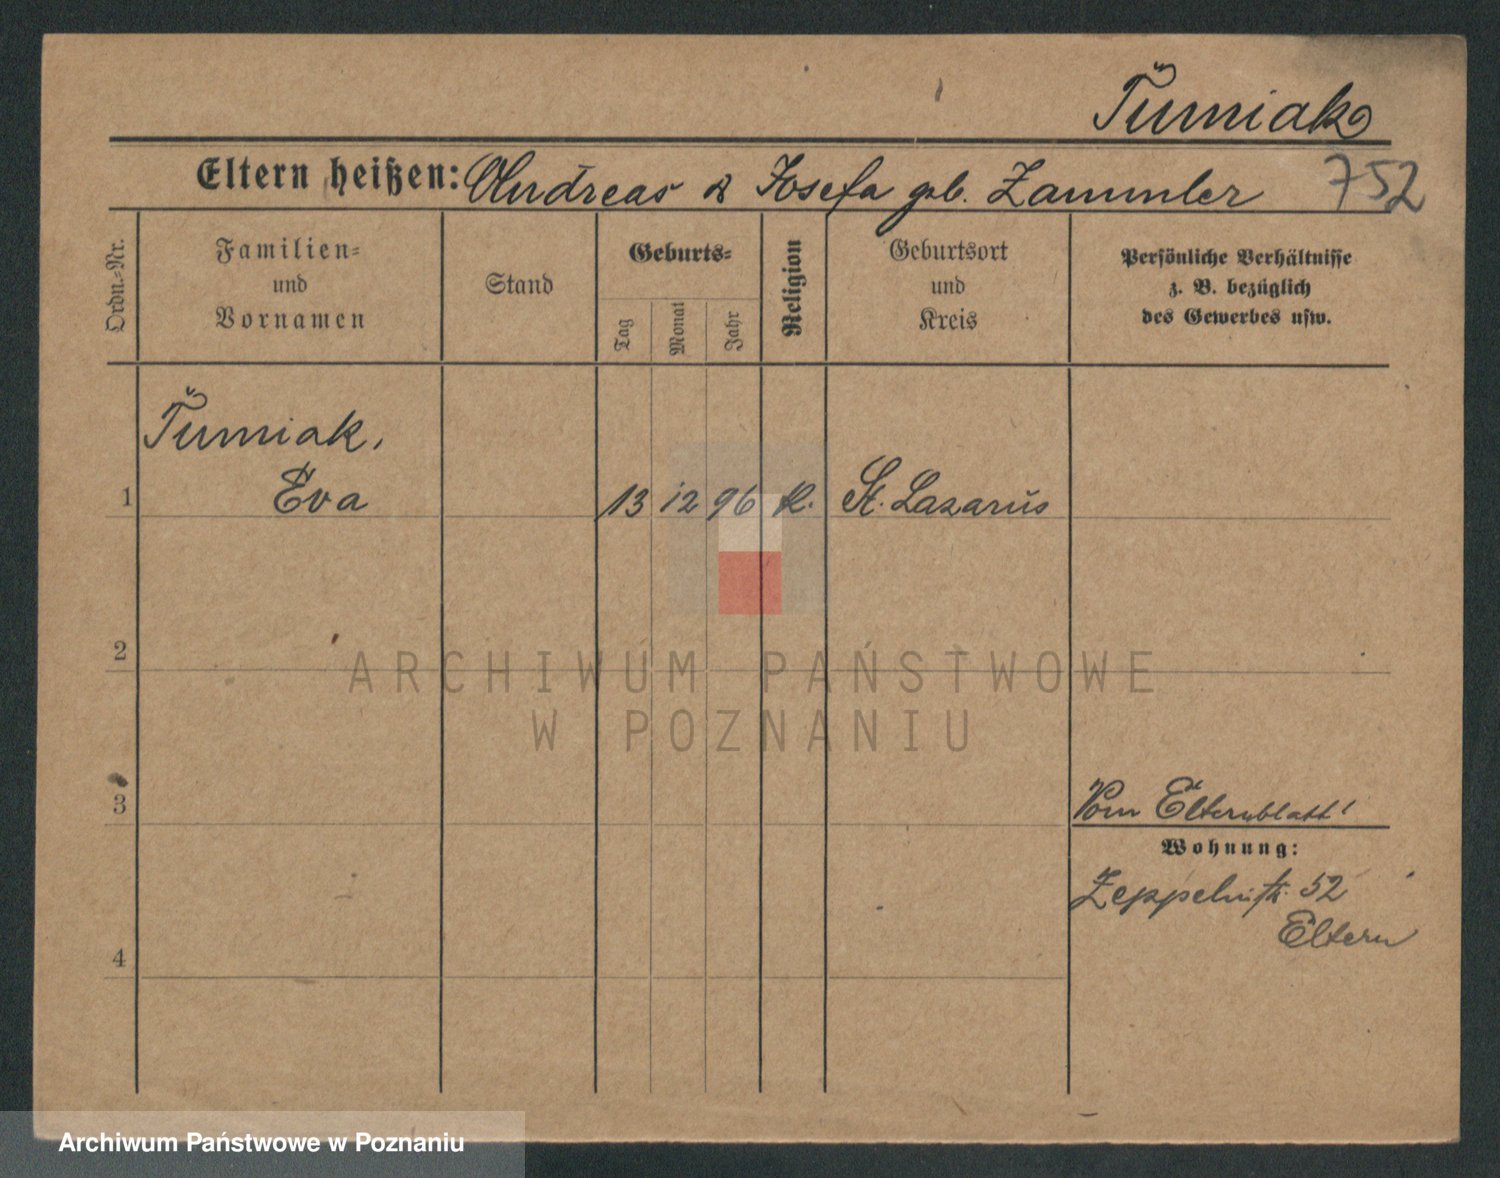 Tumiak
Eltern heißen: Andreas & Josefa geb. Zammler 752
Ordn.-Nr.
Familien-
und
Vornamen
Stand
Geburts-
Tag
Monat
Jahr
Religion
Geburtsort
und
Kreis
Persönliche Verhältnisse
z. B. bezüglich
des Gewerbes usw.
Tumiak,
1 Eva 13 12 96 k. St. Lazarus
2
3
Vom Elternblatt!
Wohnung:
Zeppelinstr. 52
Eltern
4
ARCHIWUM PAŃSTWOWE
W POZNANIU
Archiwum Państwowe w Poznaniu